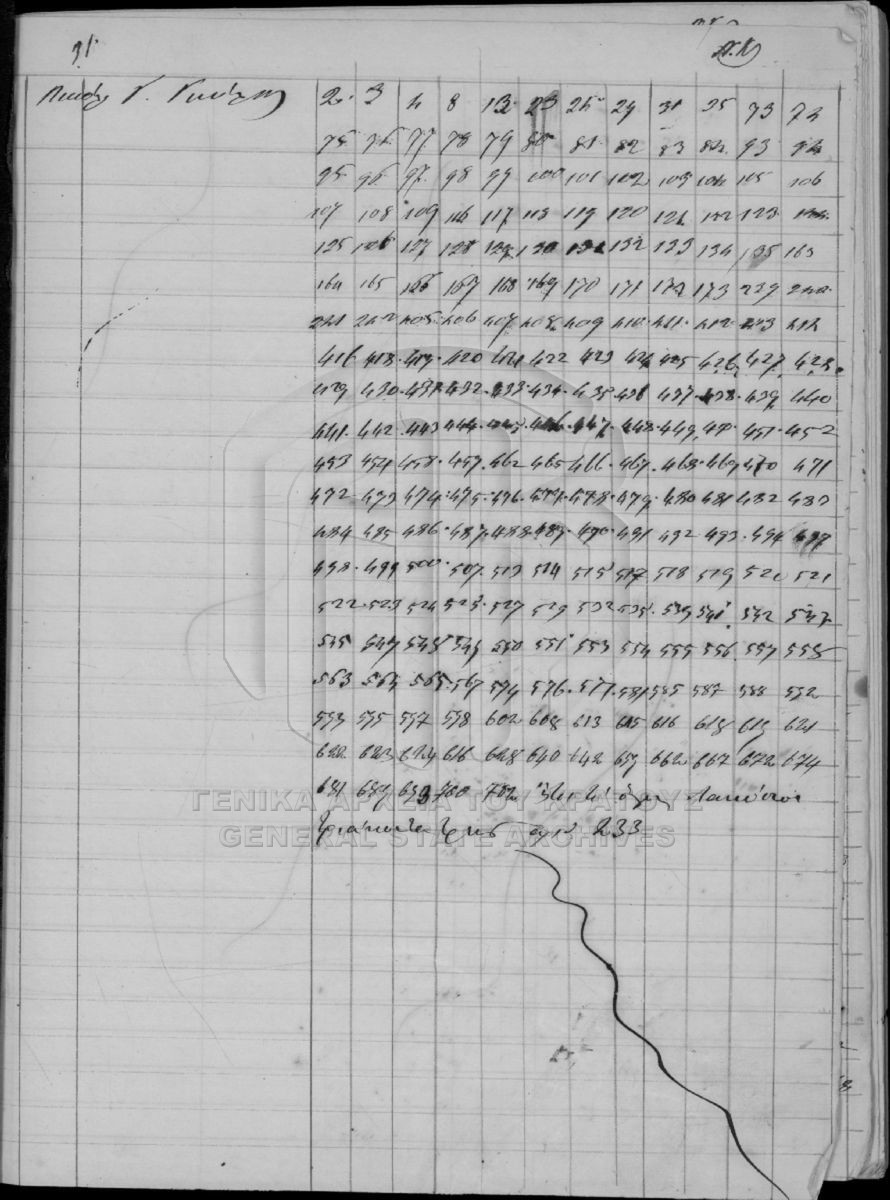 91
2 3 4 8 13 23 24 31 35 73 74
75 76 77 78 79 80 81 82 83 84 93 94
95 96 97 98 99 100 101 102 103 104 105 106
107 108 109 116 117 118 119 120 121 122 123 124
125 126 127 128 129 130 131 132 133 134 135 163
164 165 166 167 168 169 170 171 172 173 239 240
241 242 405 406 407 408 409 410 411 412 413 414
416 418 419 420 421 422 423 424 425 426 427 428
429 430 431 432 433 434 435 436 437 438 439 440
441 442 443 444 445 446 447 448 449 450 451 452
453 454 458 457 462 465 466 467 468 469 470 471
472 473 474 475 476 477 478 479 480 481 482 483
484 485 486 487 488 489 490 491 492 493 494 497
498 499 500 507 513 514 515 517 518 519 520 521
522 523 524 525 527 529 532 535 539 541 542 547
545 547 548 549 550 551 553 554 555 556 557 558
563 564 565 567 574 576 577 581 585 587 588 592
593 595 597 598 602 608 613 615 616 618 619 621
622 623 624 616 628 640 642 659 662 667 672 674
681 689 693 700 702
τριάκοντα τρεις 233
ΓΕΝΙΚΑ ΑΡΧΕΙΑ ΤΟΥ ΚΡΑΤΟΥΣ
GENERAL STATE ARCHIVES